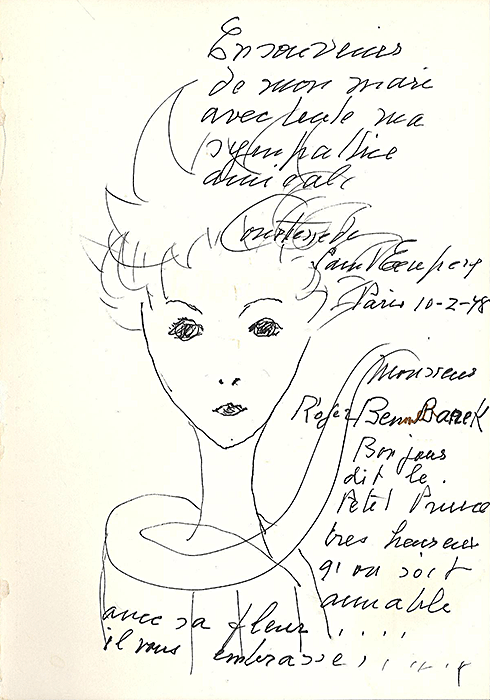 En souvenir
de mon mari
avec toute ma
sympathie
amicale
Comtesse de
Saint Exupery
Paris 10-2-48
Monsieur
Roger Benn Barek
Bonjour
dit le
Petit Prince
tres heureux
qu on soit
aimable
avec sa fleur ....
il vous embrasse, ....